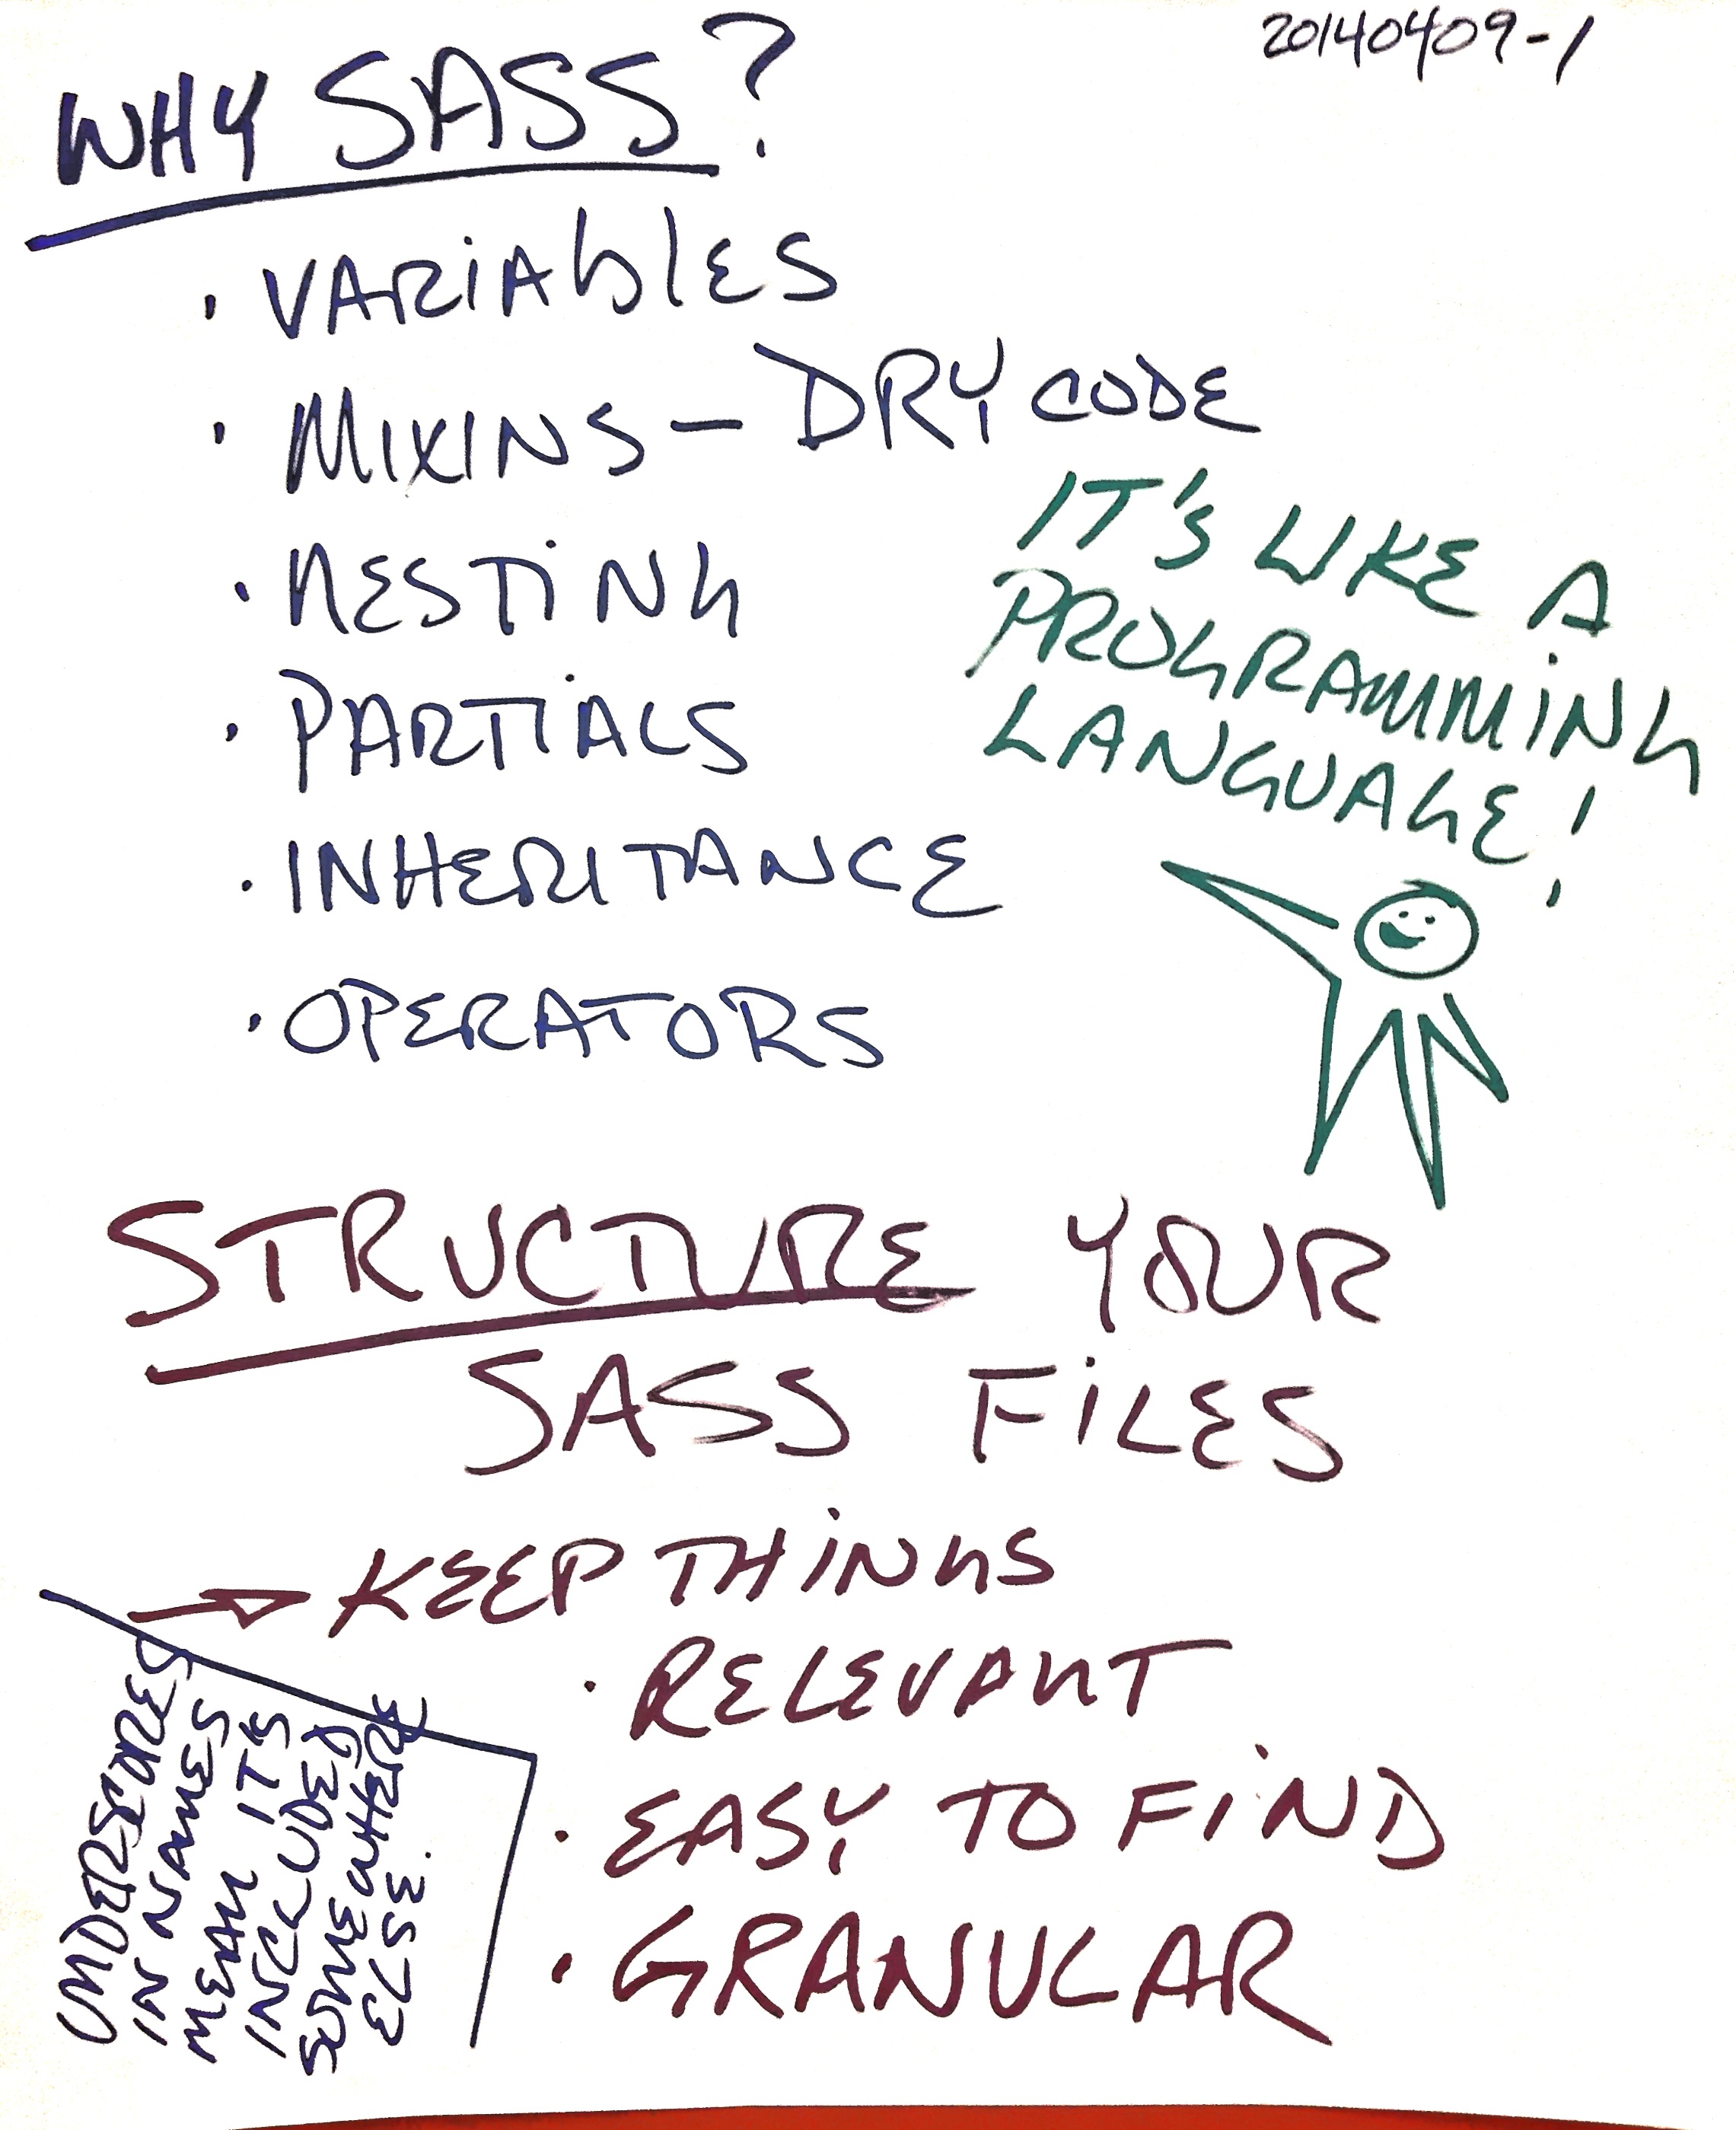 20140409-1
WHY SASS?
· VARiAblES
· MIXINS - DRY CODE
· NESTiNG
· PARTiALS
· INHERITANCE
· OPERATORS
IT'S LIKE A
PROGRAMMiNG
LANGUAGE!
STRUCTURE YOUR
SASS FiLES
→ KEEP THiNGS
· RELEVANT
· EASY TO FiND
· GRANULAR
UNDERSCORES
IN NAMES
MEAN IT'S
INCLUDED
SOMEWHERE
ELSE.